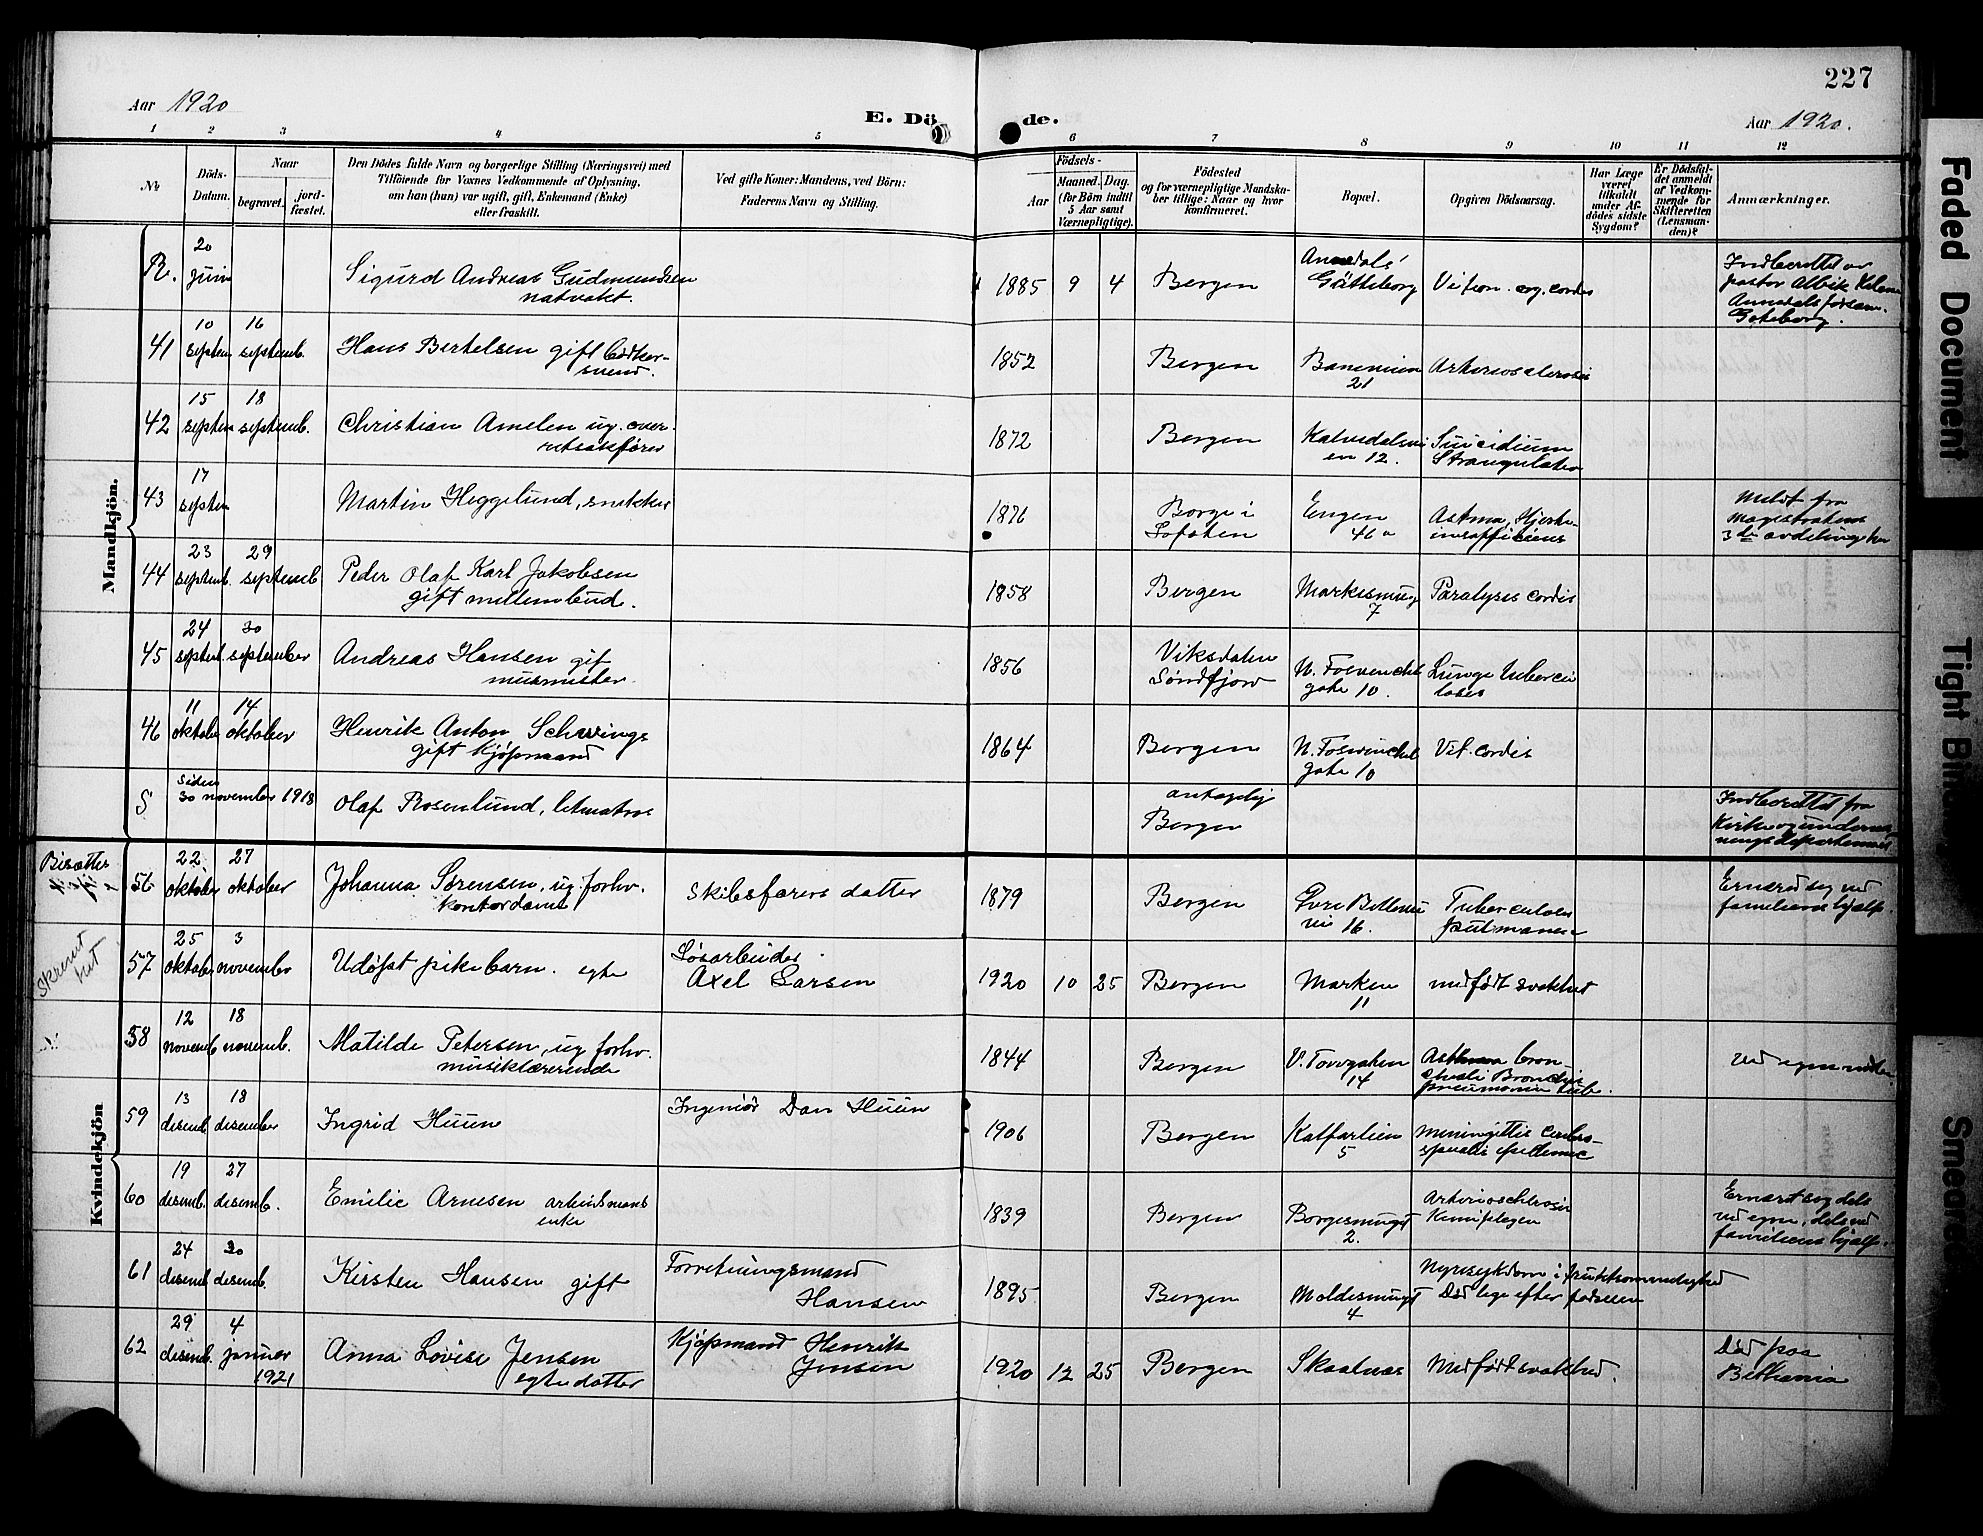 227
Aar 1920
E. Dö de.
Aar 1920.
1 2 3 4 5 6 7 8 9 10 11 12
No
Döds-Datum.
Naar
begravet.
jord-fæstet.
Den Dödes fulde Navn og borgerlige Stilling (Næringsvei) med
Tilföiende for Voxnes Vedkommende af Oplysning,
om han (hun) var ugift, gift, Enkemand (Enke)
eller fraskilt.
Ved gifte Koner: Mandens, ved Börn:
Faderens Navn og Stilling.
Födsels-
Aar
Maaned.
Dag.
(for Börn indtil
5 Aar samt
Værnepligtige).
Födested
og for værnepligtige Mandska-
ber tillige: Naar og hvor
konfirmeret.
Bopæl.
Opgiven Dödsaarsag.
Har Læge
været
tilkaldt
under Af-
dödes sidste
Sygdom?
Er Dödsfal-
det anmeldt
af Vedkom-
mende for
Skifteretten
(Lensman-
den)?
Anmærkninger.
Mandkjön.
R. 20 juni Sigurd Andreas Gudmundsen 1885 9 4 Bergen
natvakt.
Indberettet av
pastor
Annedals forsam.
Göteborg.
41 10 septem 16 septemb. Hans Bertelsen gift bødker-
svend. 1852 Bergen 21 Arteriosclerosis
42 15 septem 18 septemb. Christian Amelen ug. over-
retssakfører 1872 Bergen Kalvedalsvei
en 12. Suicidium
Strangulation
43 17 septem Martin Heggelund, snekker 1876 Borge i
Lofoten Engen
46a Astma, Hjerte-
insufficiens Meldt fra
Magistratens
3de avdeling
44 23 septemb. 29 septemb Peder Olaf Karl Jakobsen
gift mellembud. 1858 Bergen Markesmug
7 Paralysis cordis
45 24 septemb. 30 september Andreas Hansen gift
murmester. 1856 Viksdalen
Søndfjord gate 10. Lunge tubercu
loses
46 11 oktober 14 oktober Henrik Anton
gift kjøpmand 1864 Bergen gate 10 Vit. cordis
S siden
30 november 1918 Olaf Rosenlund, letmatros antagelig
Bergen Indberettet fra
Kirke og undervis-
ningsdepartementet
Kvindekjön
56 22 oktober 27 oktober Johanna Sørensen, ug. forhv.
kontordame Skibsførers datter 1879 Bergen
16. Tuberculosis
pulmonum Ernæret sig ved
familiens hjælp
57 25 oktober 3 november Udøpt pikebarn. egte Løsarbeider
Axel Larsen 1920 10 25 Bergen Marken
11 medfødt svakhet
58 12 novemb 18 novemb. Matilde Petersen, ug. forhv.
musiklærerinde 1844 Bergen V. Torvgaten
14 Asthma bron
pneumonia ved egne midler
59 13 desemb. 18 desember Ingrid Huun Ingeniør Dan Huun 1906 Bergen Kalfarlien
5 meningitis cerebro-
spinalis epidemic
60 19 desemb. 27 desemb. Emilie Arnesen arbeidsmands
enke 1839 Bergen
2. Arteriosclerosis Ernæret sig dels
ved egne, dels ved
familiens hjælp.
61 24 desemb. 30 desemb. Kirsten Hansen gift Forretningsmand
Hansen 1895 Bergen Moldesmuget
4 Nyresykdom i fruktsommelighed
Død lige efter fødselen
62 29 desemb. 4 januar
1921 Anna Lovise Jensen
egte datter Kjøpmand Henrik
Jensen 1920 12 25 Bergen Skaatnæs Medfødt svakhed. Død paa
Bethania
Faded Document
Tight Binding
Smeared